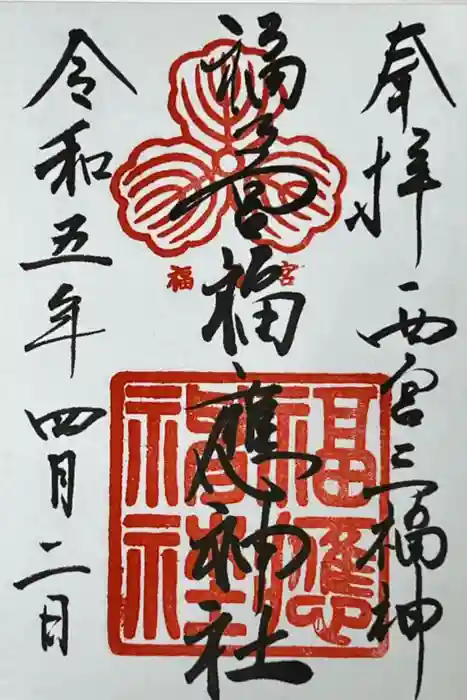 奉拝 西宮三福神
福乃宮福應神社
福 宮
福應神社
令和五年四月二日